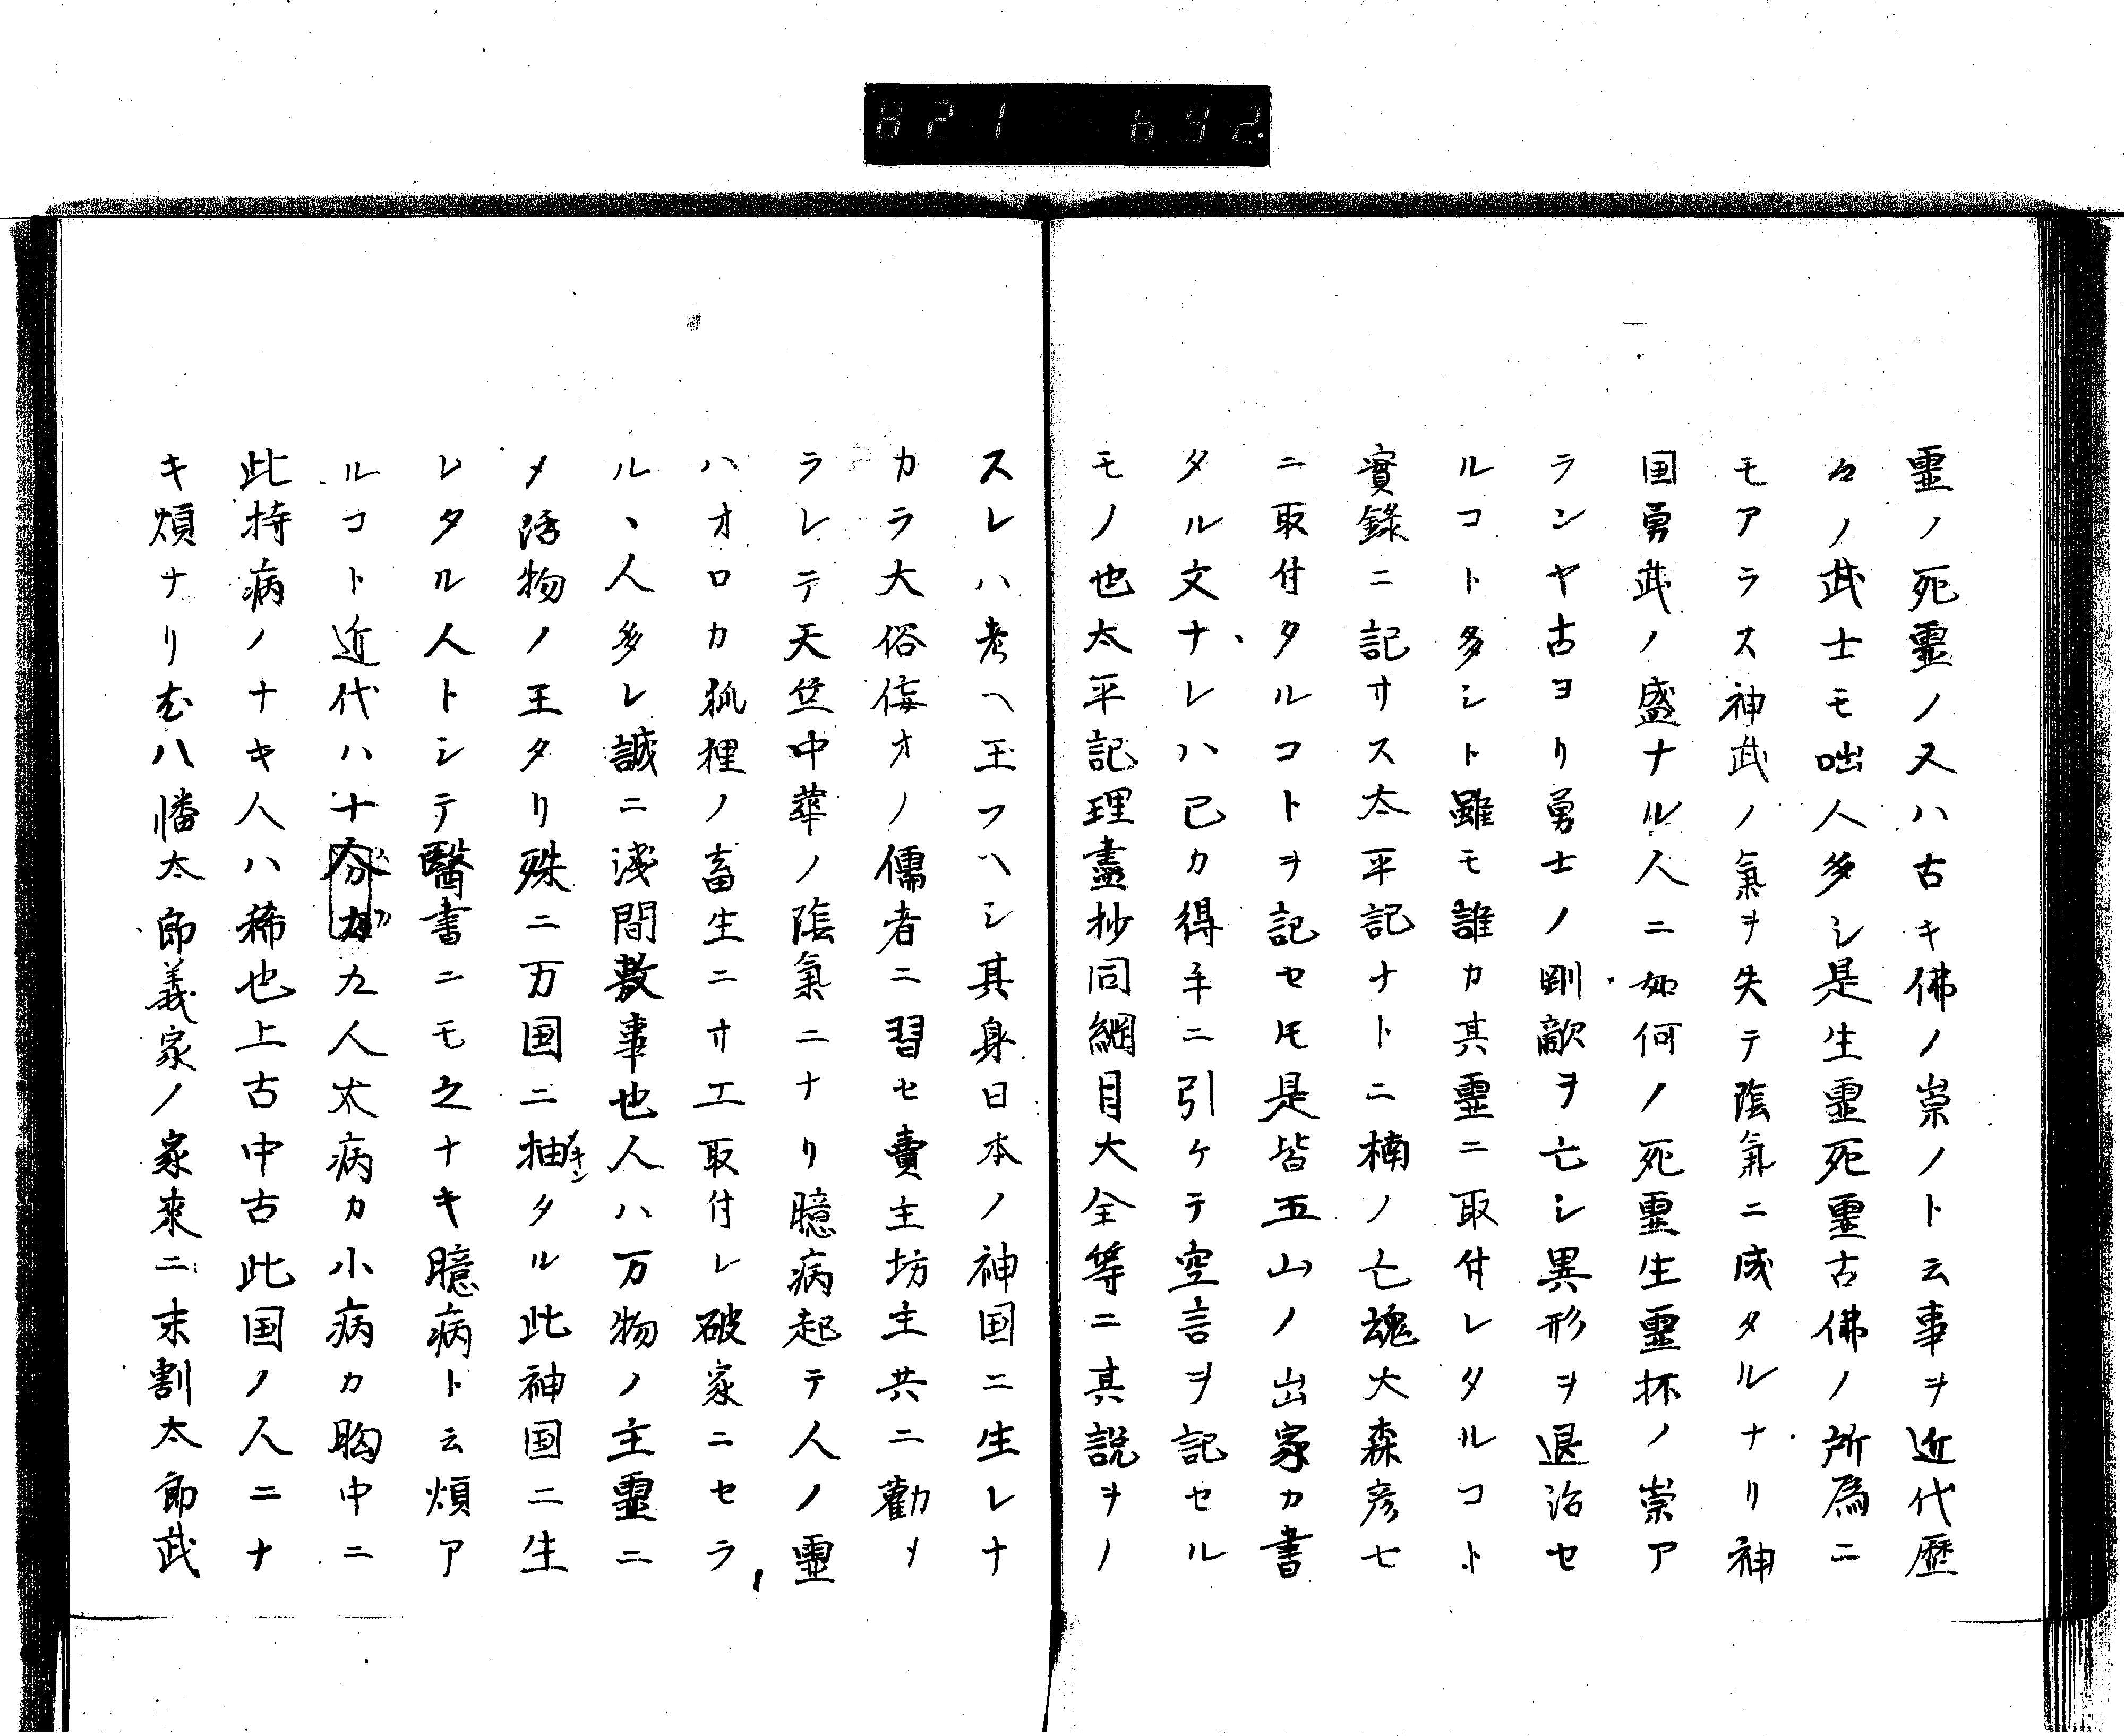 821 692
霊ノ死霊ノ又ハ古キ佛ノ崇ノト云事ヲ近代歴
々ノ武士モ咄人多シ是生霊死霊古佛ノ所為ニ
モアラス神武ノ氣ヲ失テ陰氣ニ成タルナリ神
国勇武ノ盛ナル人ニ如何ノ死霊生霊抔ノ崇ア
ランヤ古ヨリ勇士ノ剛敵ヲ亡シ異形ヲ退治セ
ルコト多シト雖モ誰カ其霊ニ取付レタルコト
實録ニ記サス太平記ナトニ楠ノ亡魂大森彦七
ニ取付タルコトヲ記セモ是皆五山ノ出家カ書
タル文ナレハ已カ得手ニ引ケテ空言ヲ記セル
モノ也太平記理盡抄同綱目大全等ニ其説ヲノ
スレハ考ヘ玉フヘシ其身日本ノ神国ニ生レナ
カラ大俗侫オノ儒者ニ習セ賣主坊主共ニ勸メ
ラレテ天竺中華ノ陰氣ニナリ臆病起テ人ノ霊
ハオロカ狐狸ノ畜生ニサエ取付レ破家ニセラ
ル、人多レ誠ニ淺間敷事也人ハ万物ノ主霊ニ
メ活物ノ王タリ殊ニ万国ニ抽タル此神国ニ生
レタル人トシテ醫書ニモ之ナキ臆病ト云煩ア
ルコト近代ハ十分カ九人大病カ小病カ胸中ニ
此持病ノナキ人ハ稀也上古中古此国ノ人ニナ
キ煩ナリ去八幡太郎義家ノ家来ニ末割太郎武